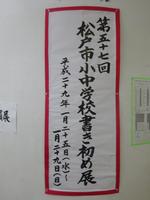 第五十七回
松戸市小中学校書き初め展
平成二十九年一月二十五日(水)~
一月二十九日(日)
展